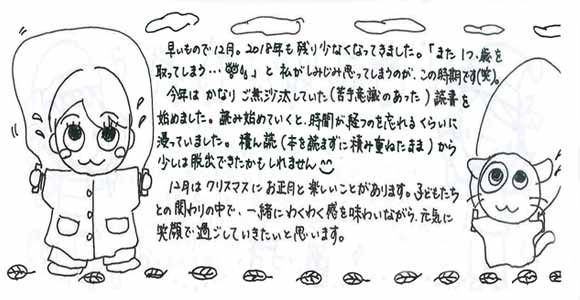 早いもので12月。2018年も残り少なくなってきました。「また1つ、歳を
取ってしまう…」と私がしみじみ思ってしまうのが、この時期です(笑)。
今年はかなりご無沙汰していた(苦手意識のあった)読書を
始めました。読み始めていくと、時間が経つのを忘れるくらいに
浸っていました。積ん読(本を読まずに積み重ねたまま)から
少しは脱出できたかもしれません
12月はクリスマスにお正月と楽しいことがあります。子どもたち
との関わりの中で、一緒にわくわく感を味わいながら、元気に
笑顔で過ごしていきたいと思います。